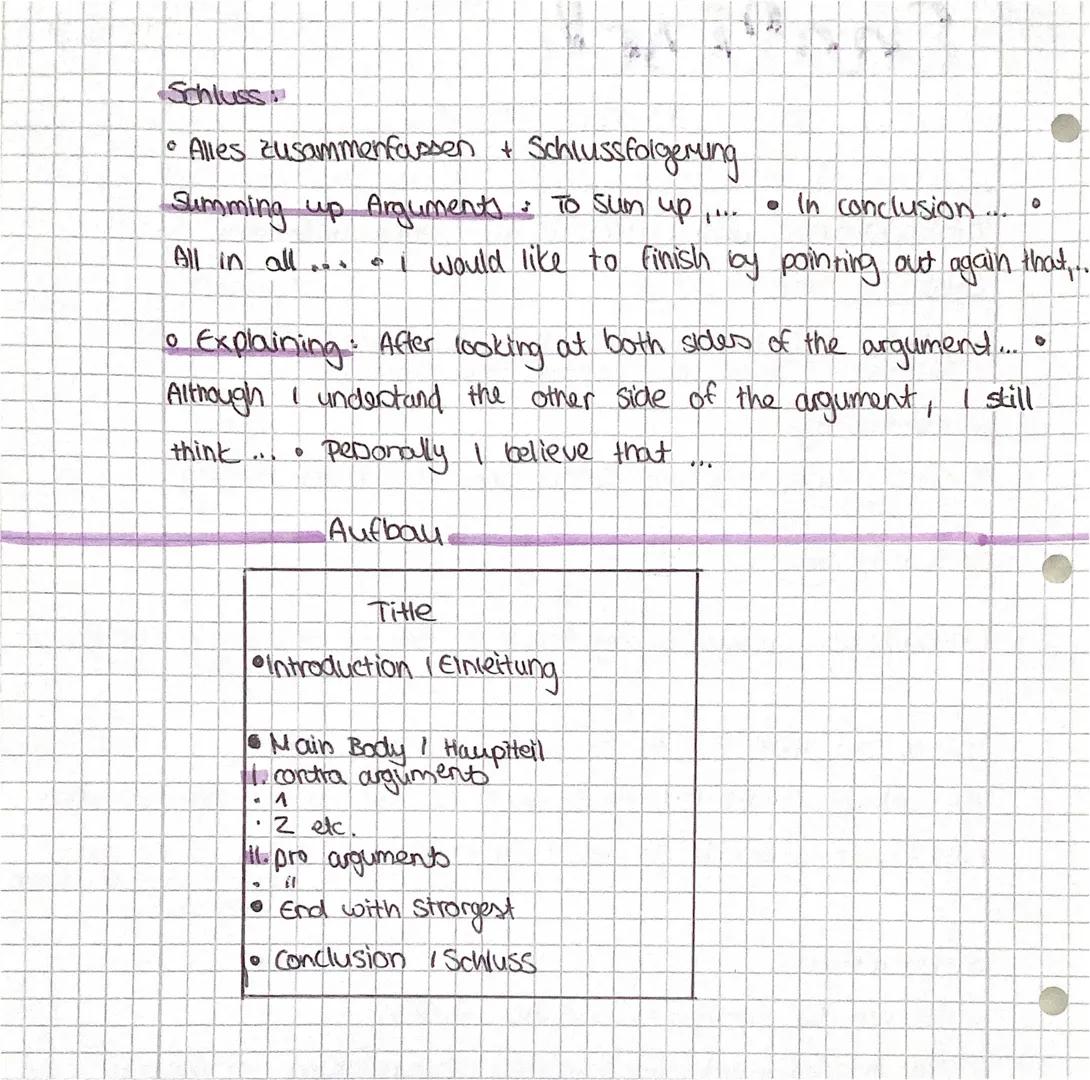 Schluss:
• Alles zusammenfassen + Schlussfolgerung
Summing up Arguments: To sum up,... • In conclusion... •
All in all ... • i would like to finish by pointing out again that,..
• Explaining: After looking at both sides of the argument... •
Although I understand the other side of the argument, I still
think ... • Personally I believe that ...
Aufbau
Title
• Introduction / Einleitung
• Main Body / Hauptteil
I. contra arguments
• 1
• 2 etc.
II. pro arguments
• "
• End with Strongest
• Conclusion / Schluss